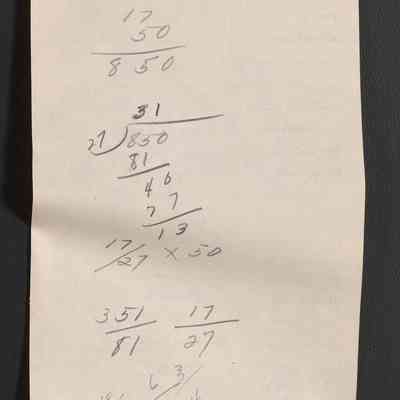 17
50
850
31
27)850
81
40
27
13
17/27 × 50
351/81 17/27
63